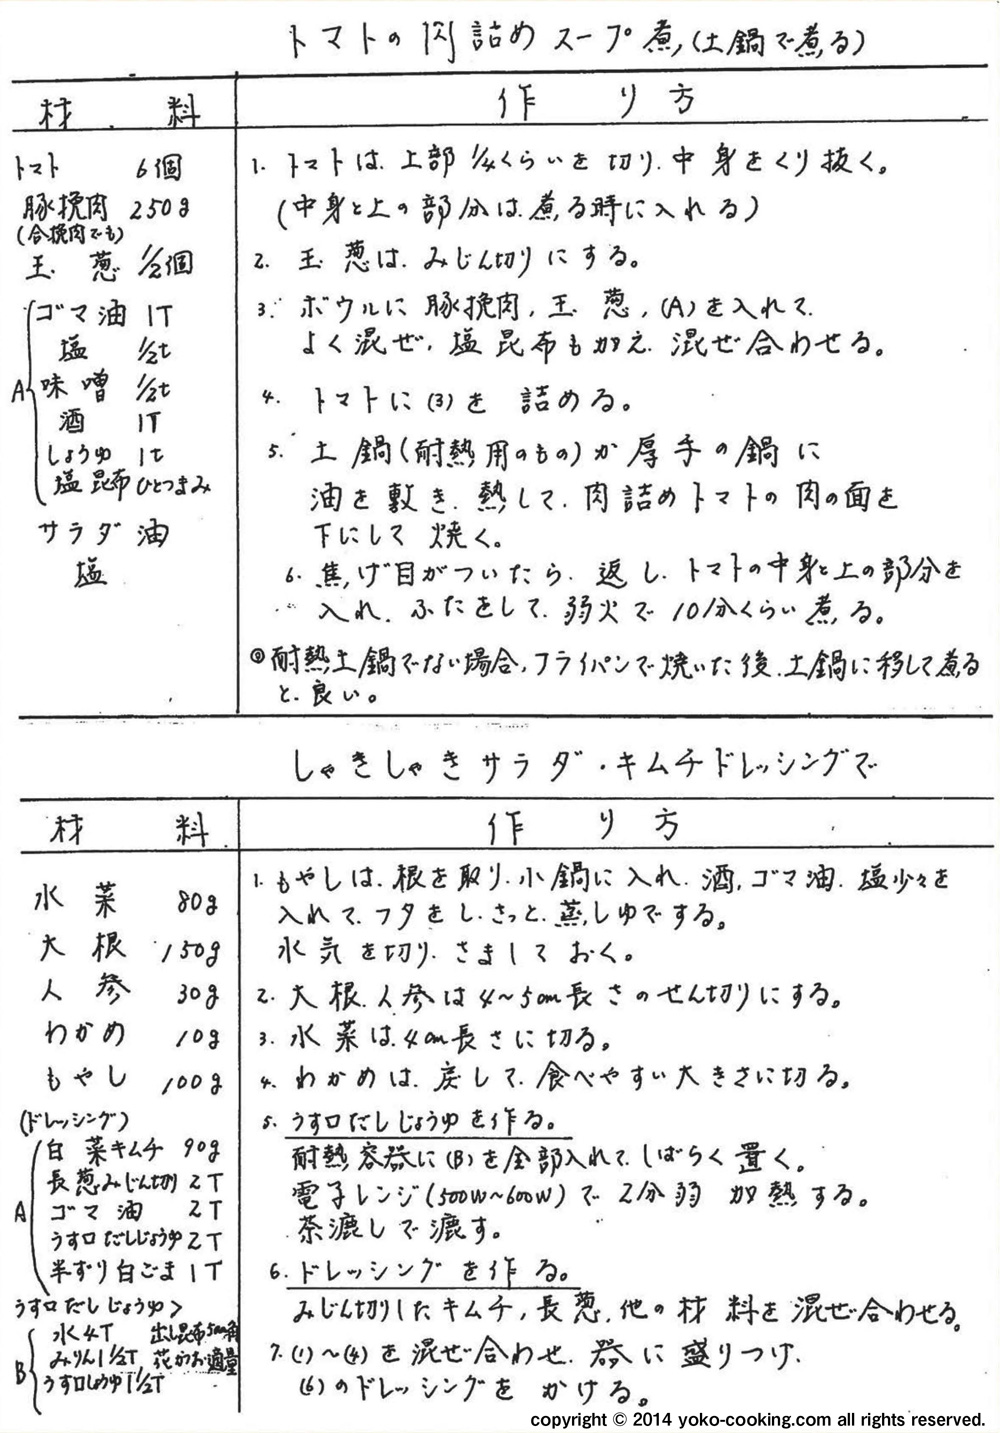 トマトの肉詰めスープ煮(土鍋で煮る)
材料
作り方
トマト 6個
豚挽肉 250g
(合挽肉でも)
玉葱 1/2個
A
ゴマ油 1T
塩 1/2t
味噌 1/2t
酒 1T
しょうゆ 1t
塩昆布 ひとつまみ
サラダ油
塩
1. トマトは、上部1/4くらいを切り、中身をくり抜く。
(中身と上の部分は、煮る時に入れる)
2. 玉葱は、みじん切りにする。
3. ボウルに豚挽肉、玉葱、(A)を入れて、
よく混ぜ、塩昆布も加え、混ぜ合わせる。
4. トマトに(3)を詰める。
5. 土鍋(耐熱用のもの)か厚手の鍋に
油を敷き、熱して、肉詰めトマトの肉の面を
下にして焼く。
6. 焦げ目がついたら、返し、トマトの中身と上の部分を
入れ、ふたをして、弱火で10分くらい煮る。
◎耐熱土鍋でない場合、フライパンで焼いた後、土鍋に移して煮る
と、良い。
しゃきしゃきサラダ・キムチドレッシングで
材料
作り方
水菜 80g
大根 150g
人参 30g
わかめ 10g
もやし 100g
(ドレッシング)
A
白菜キムチ 90g
長葱みじん切り 2T
ゴマ油 2T
うす口だしじょうゆ 2T
半ずり白ごま 1T
うす口だしじょうゆ>
B
水4T 出し昆布5cm角
みりん1 1/2T、花かつお適量
うす口しょうゆ1 1/2T
1. もやしは、根を取り、小鍋に入れ、酒、ゴマ油、塩少々を
入れて、フタをし、さっと、蒸しゆでする。
水気を切り、さましておく。
2. 大根、人参は4~5cm長さのせん切りにする。
3. 水菜は、4cm長さに切る。
4. わかめは、戻して、食べやすい大きさに切る。
5. うす口だしじょうゆを作る。
耐熱容器に(B)を全部入れて、しばらく置く。
電子レンジ(500W~600W)で2分弱加熱する。
茶漉しで漉す。
6. ドレッシングを作る。
みじん切りしたキムチ、長葱、他の材料を混ぜ合わせる。
7. (1)~(4)を混ぜ合わせ、器に盛りつけ、
(6)のドレッシングをかける。
copyright © 2014 yoko-cooking.com all rights reserved.